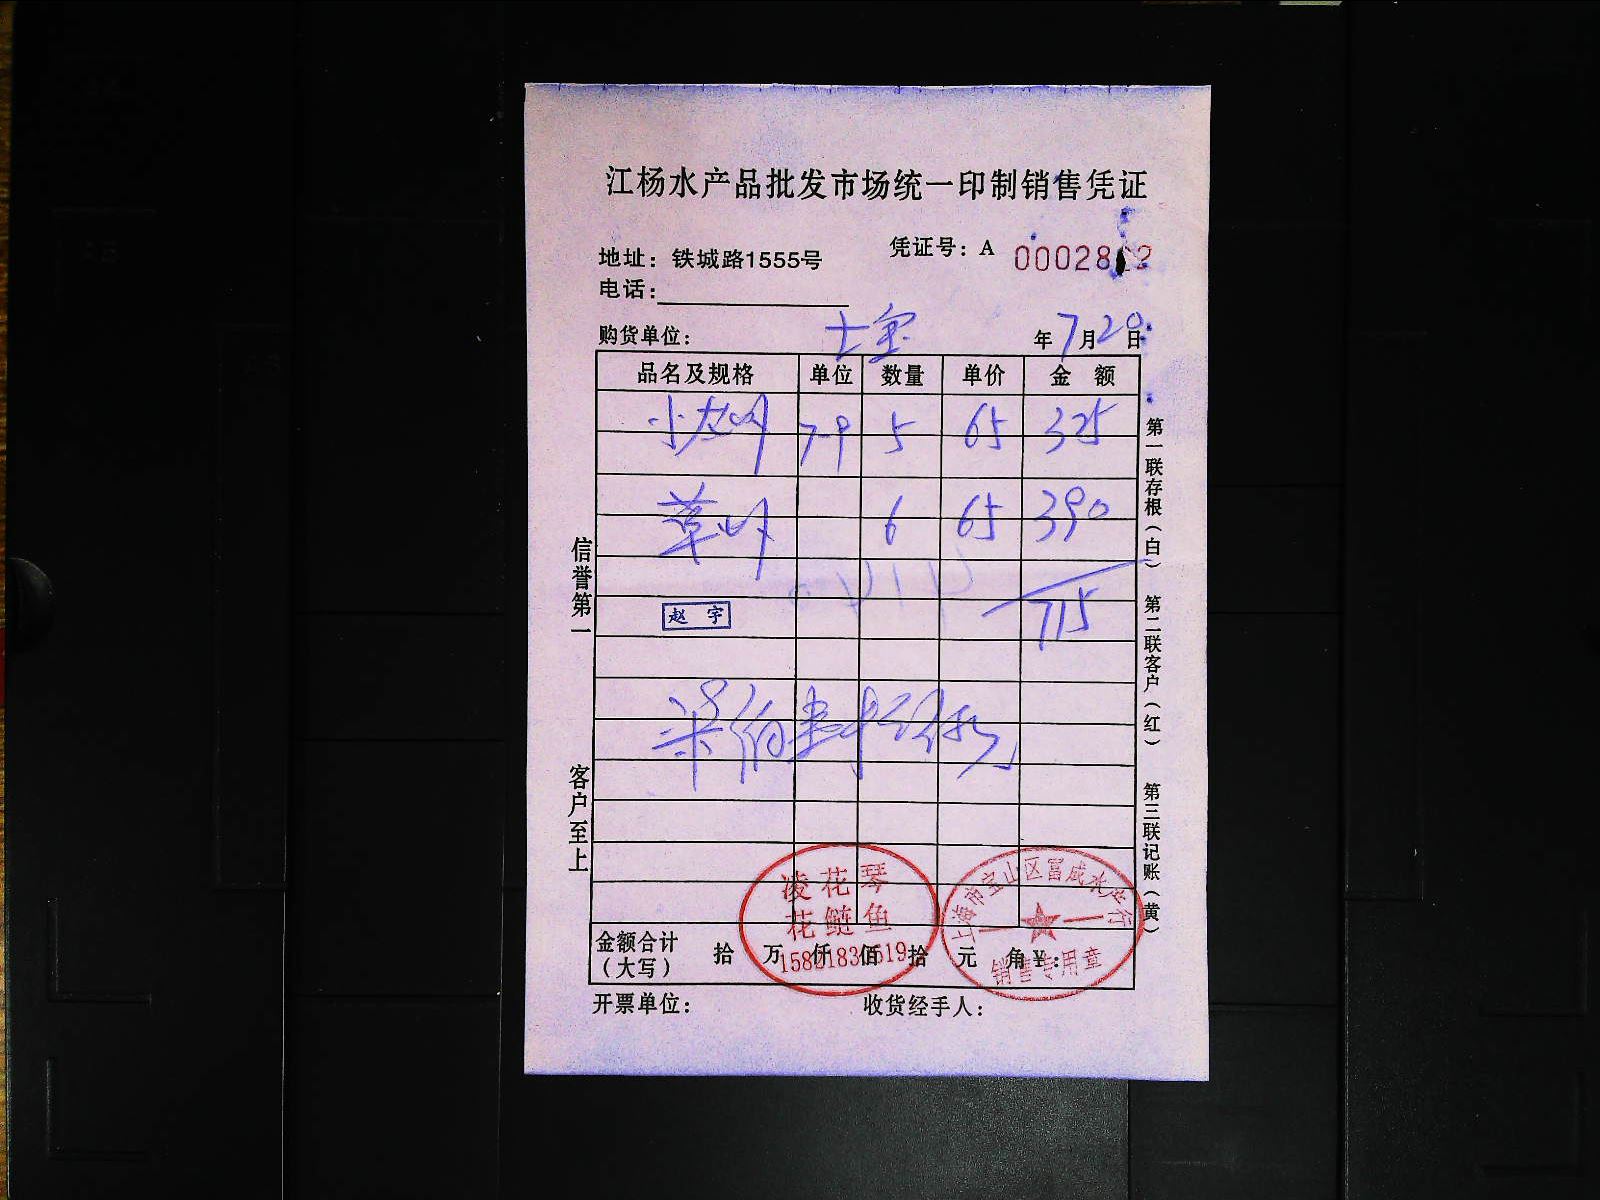 江杨水产品批发市场统一印制销售凭证
凭证号：A 00028
地址：铁城路1555号
电话：
购货单位： 士宝 年7月20日
品名及规格 单位 数量 单价 金额
小龙虾 7-9 5 65 325
草虾 6 65 390
715
赵宇
信誉第一
客户至上
第一联存根（白） 第二联客户（红） 第三联记账（黄）
凌花琴
花鲢鱼
上海市宝山区富成水产行
销售专用章
金额合计（大写） 拾 万 仟 佰 拾 元 角 ¥：
开票单位： 收货经手人：